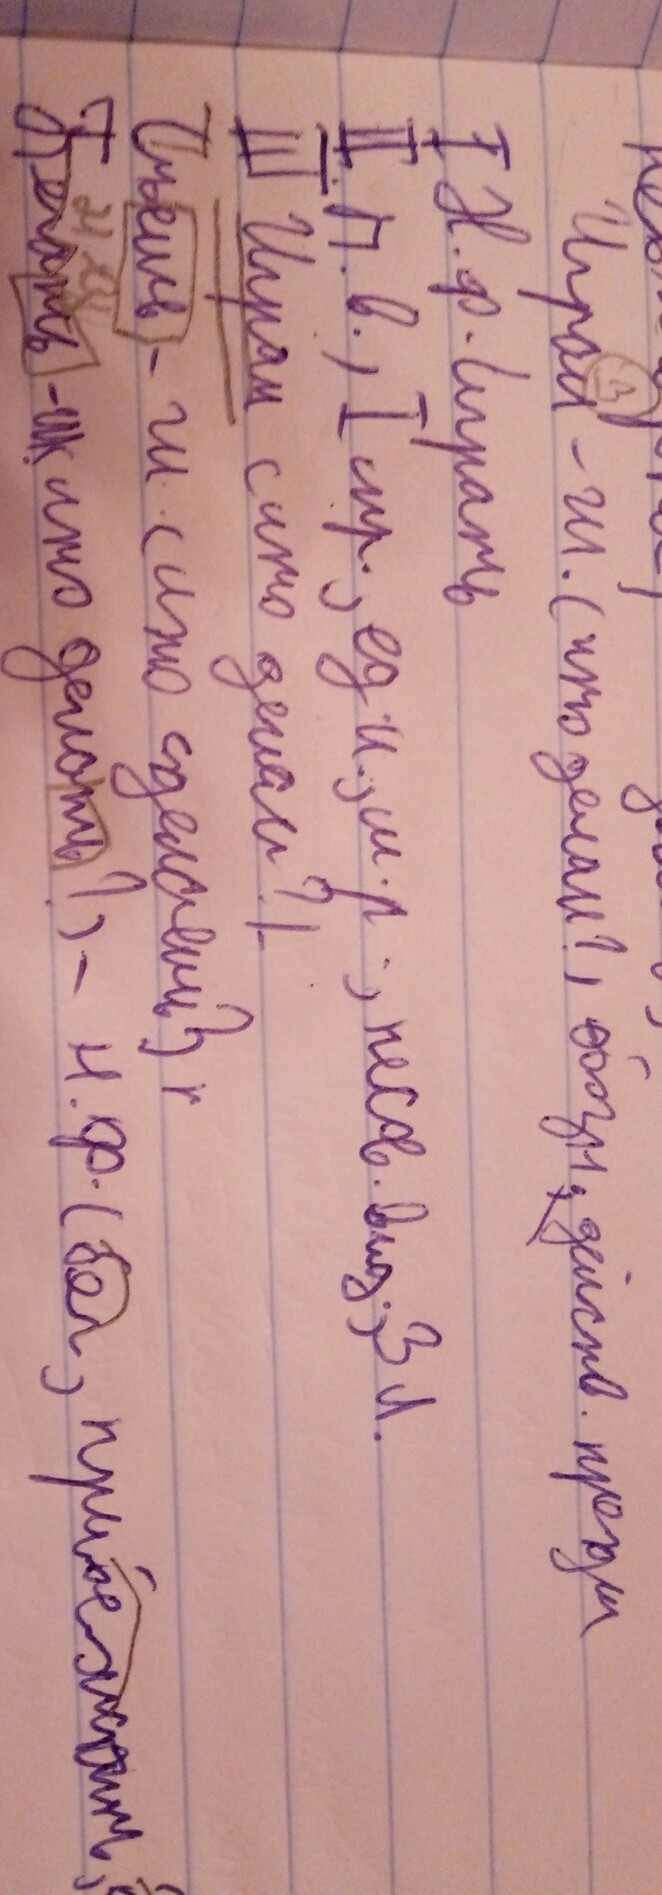 Играл³ - гл. (что делал?), обозн. действ. предм
I Н.ф. Играть
II. П.в., I спр., ед.ч., м.р., несов. вид., 3 л.
III Играл (что делал?)
Съешь - гл. (что сделаешь?),
Бегать - (что делать?), - н.ф. (бег,